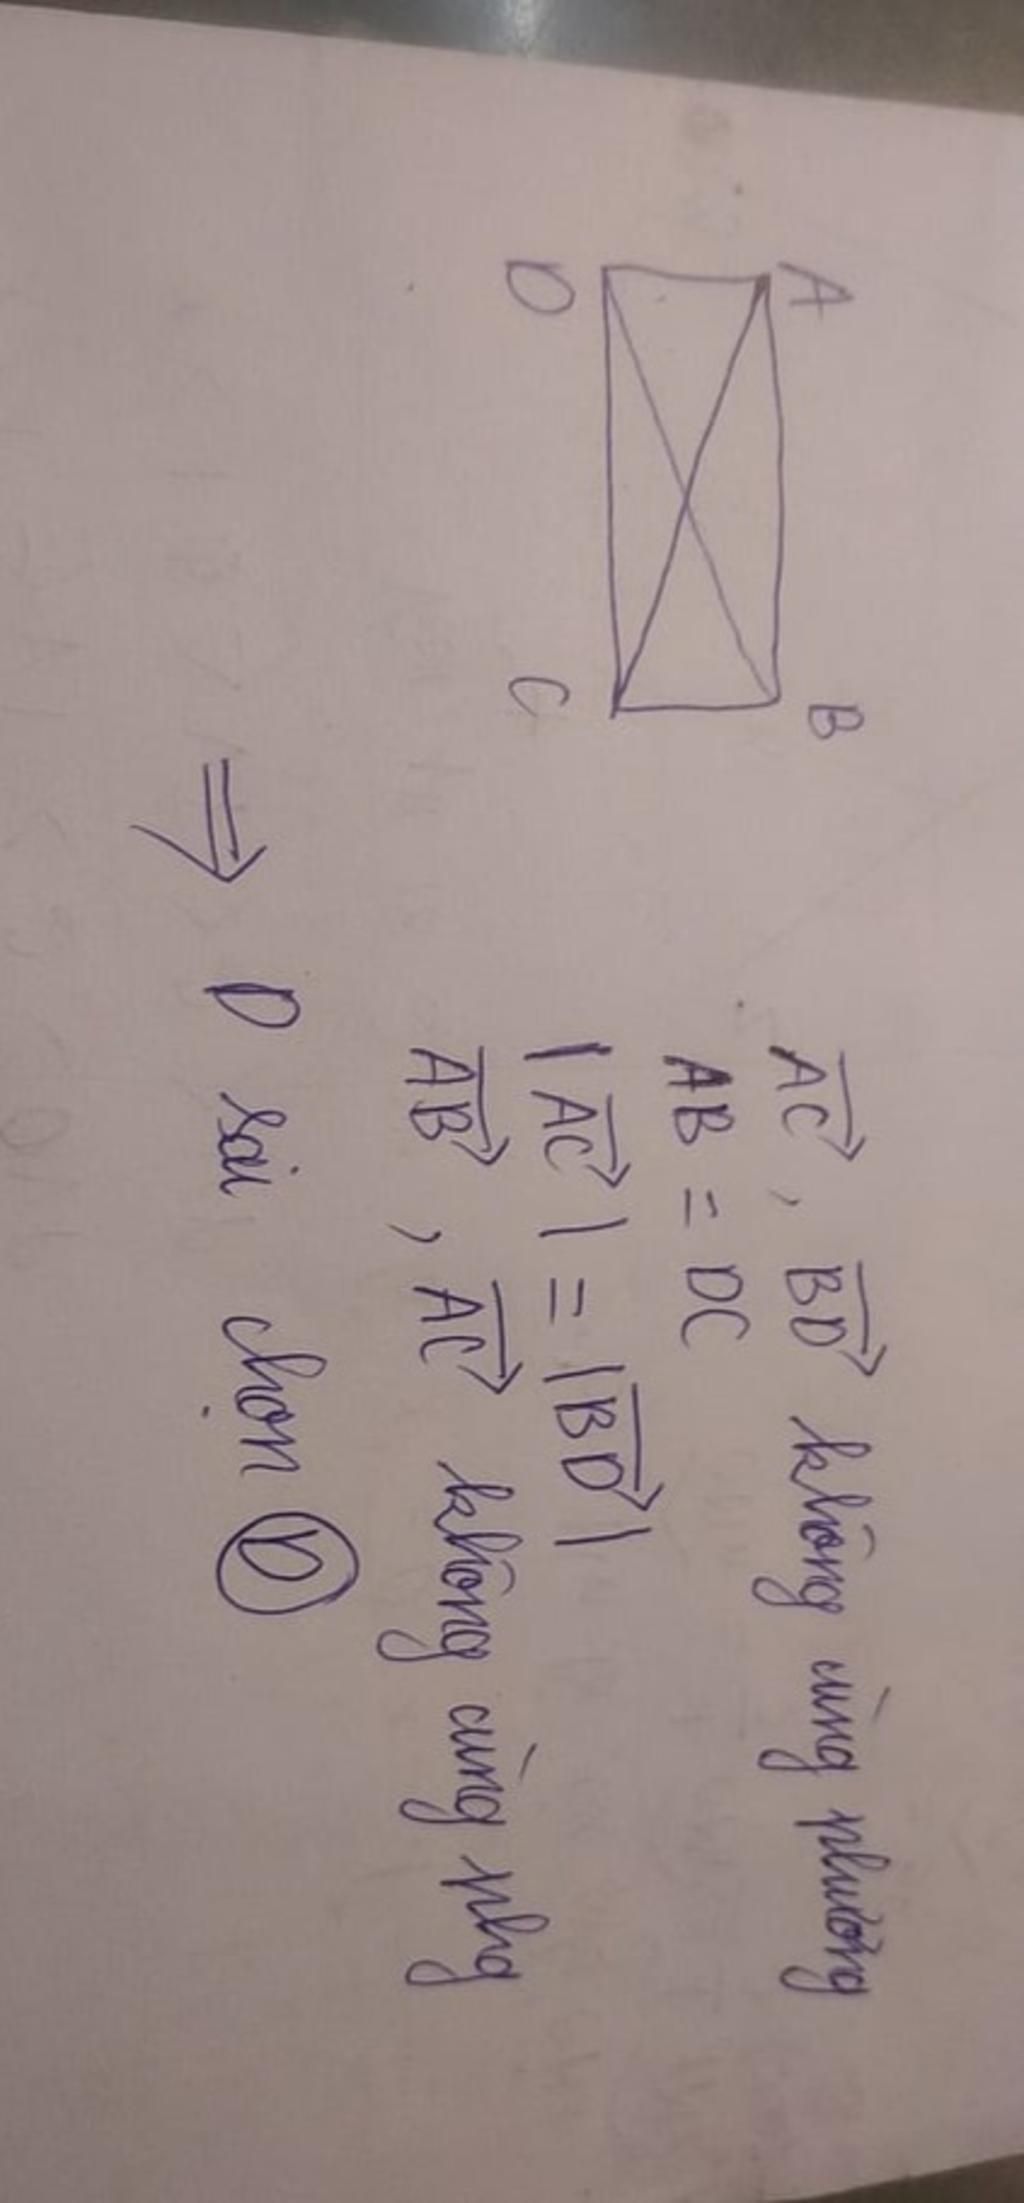 A B
D C
\overrightarrow{AC}, \overrightarrow{BD} không cùng phương
AB = DC
|\overrightarrow{AC}| = |\overrightarrow{BD}|
\overrightarrow{AB}, \overrightarrow{AC} không cùng phg
⇒ D sai chọn D